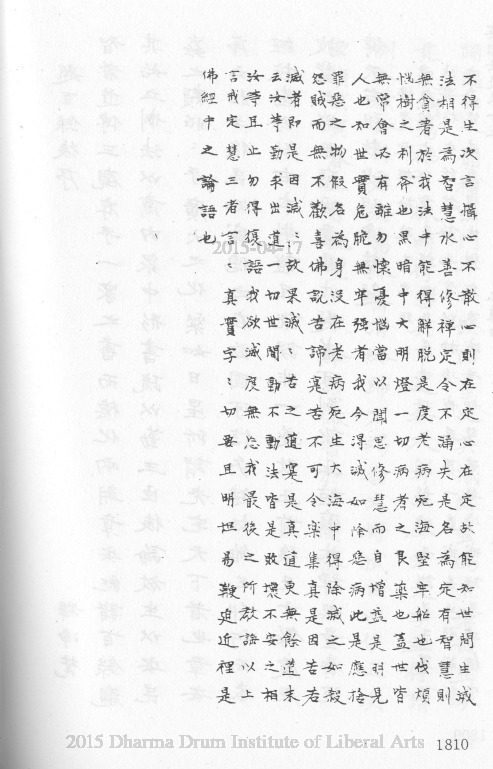 不得生次言攝心不散心則在定心在定故能知世間生滅
法相是為智慧水善修禪定令不漏失是名為定有智慧則
無貪著於我法中能得解脫是度老病死海堅牢船也伐煩
惱樹之利斧也黑暗中大明燈一切病者之良藥也蓋世皆
無常會必有離勿懷憂惱當以聞思修慧而自增益是明見
人也知世實危脆無牢强者我今得滅如除惡病此是應捨
罪惡之物假名為身沒在老病死生大海中得除滅之如殺
怨賊而無不歡喜佛說苦諦寔苦不可令樂集真是因苦若
滅者即是因滅:故果滅:苦之道寔是真道更無餘道末
云汝等勤求出道一切世間動不動法皆是敗壞不安之相
汝等且止勿得復語我欲滅度無忘我最後之所教誨以上
言戒定慧三者言:真實字:切要且明坦易鞭迫近裡是
佛經中之論語也
2015-04-17
2015 Dharma Drum Institute of Liberal Arts
1810